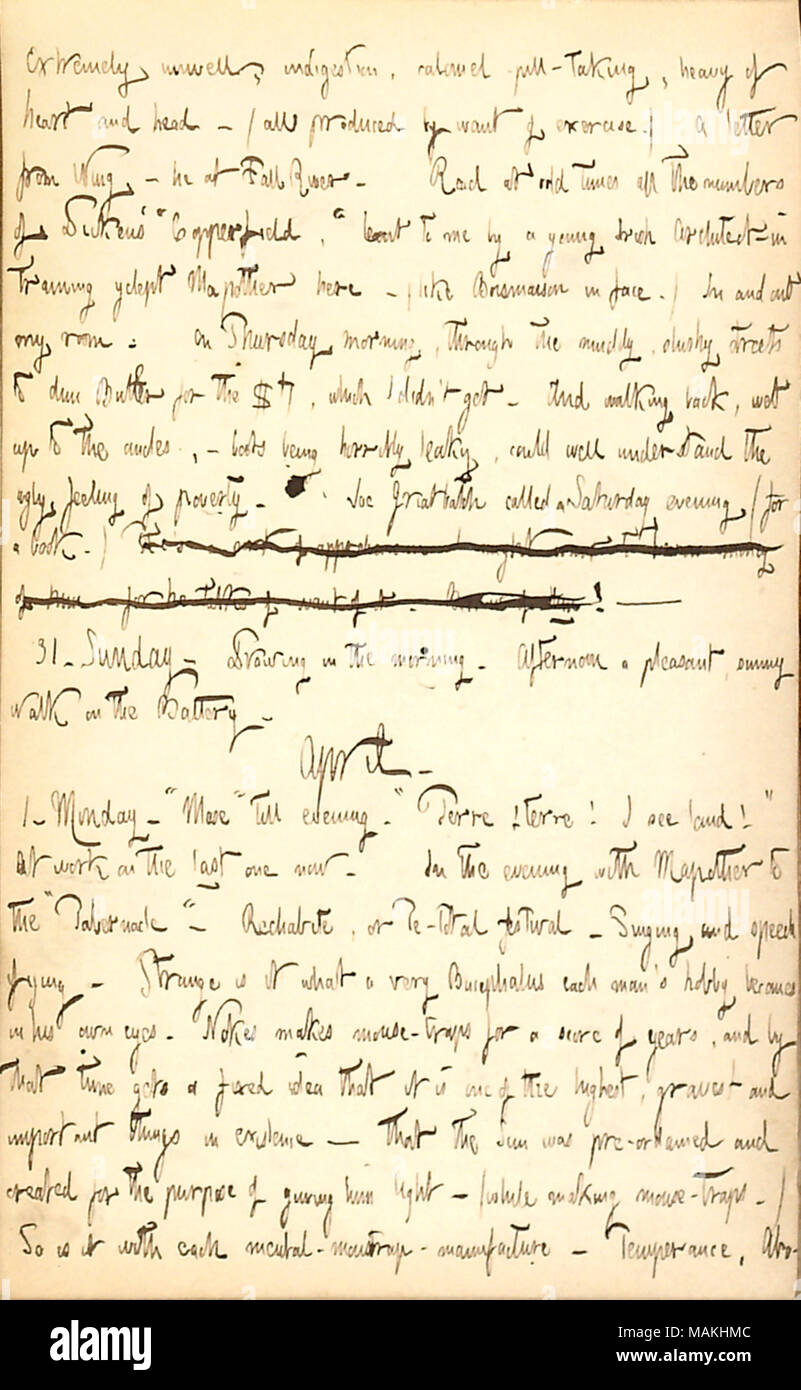 Extremely unwell, indigestion, calomel pill-taking, heavy of
heart and head - (all produced by want of exercise.) A letter
from Wing, - he at Fall River. Read at odd times all the numbers
of Dickens' "Copperfield," lent to me by a young Irish Architect-in
training yclept Mapother here - (like Boismaison in face.) In and out
my room. On Thursday morning, through the muddy, slushy streets
to dun Butler for the $4, which I didn't get. And walking back, wet
up to the ancles, - boots being horribly leaky, could well understand the
ugly feeling of poverty. Joe Greatbatch called a Saturday evening (for
a book.)
of him for he talks of want of it.
31. Sunday. Drawing in the morning. Afternoon a pleasant, sunny
walk on the Battery.
April.
1. Monday. "Mose" till evening. "Terre! terre! I see land!"
At work on the last one now. In the evening with Mapother to
the "Tabernacle" - Rechabite, or Te-total festival - Singing and speech
fying. Strange is it what a very Bucephalus each man's hobby becomes
in his own eyes. Nokes makes mouse-traps for a score of years, and by
that time gets a fixed idea that it is one of the highest, gravest and
important things in existence - that the Sun was pre-ordained and
created for the purpose of giving him light - (while making mouse-traps.)
So is it with each mental-mousetrap-manufacture - Temperance, Abo-
alamy
Image ID: MAKHMC
www.alamy.com